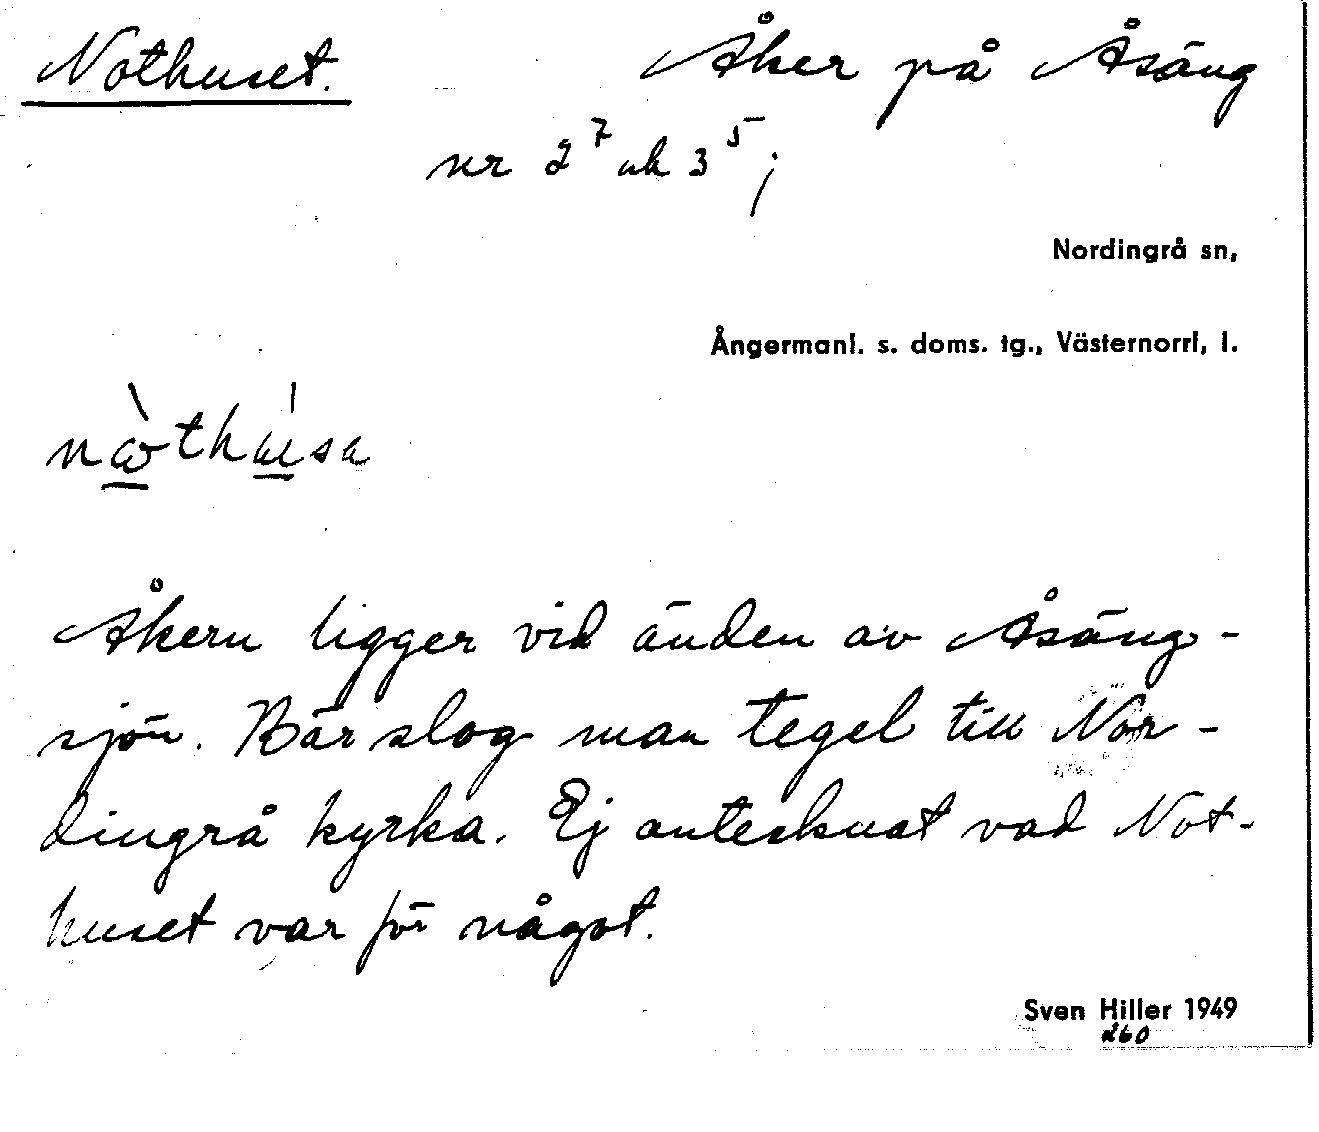 Nothuset. Åker på Åsäng
nr 2⁷ och 3⁵;
Nordingrå sn,
Ångermanl. s. doms. tg., Västernorrl, l.
Åkern ligger vid änden av Åsäng-
sjön. Där slog man tegel till Nor-
dingrå kyrka. Ej antecknat vad Not-
huset var för något.
Sven Hiller 1949
260